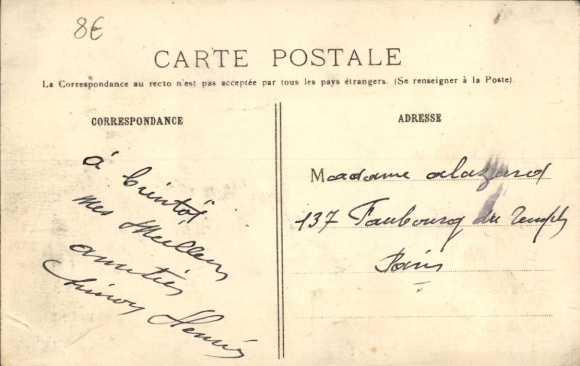 8€
CARTE POSTALE
La Correspondance au recto n'est pas acceptée par tous les pays étrangers. (Se renseigner à la Poste).
CORRESPONDANCE
à bientôt
mes meilleures
amitiés
Henri
ADRESSE
Madame Alazard
137 Faubourg du Temple
Paris